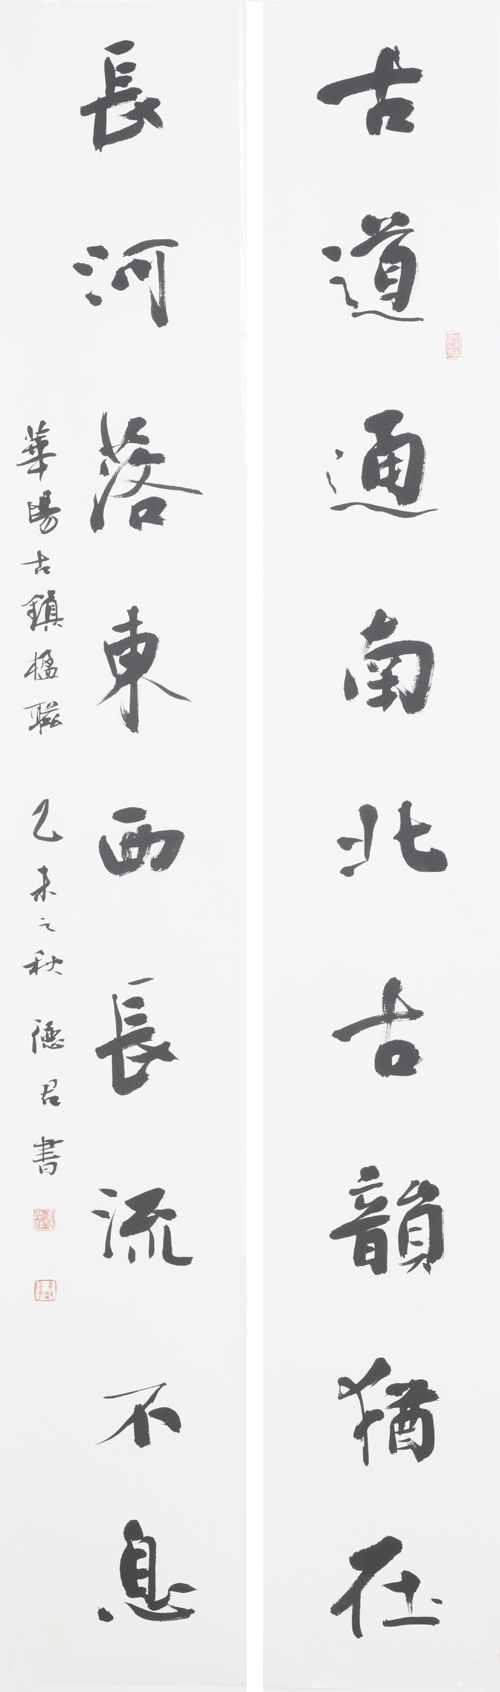 古道通南北古韻猶在
長河落東西長流不息
華陽古鎮楹聯 乙未之秋 德君書